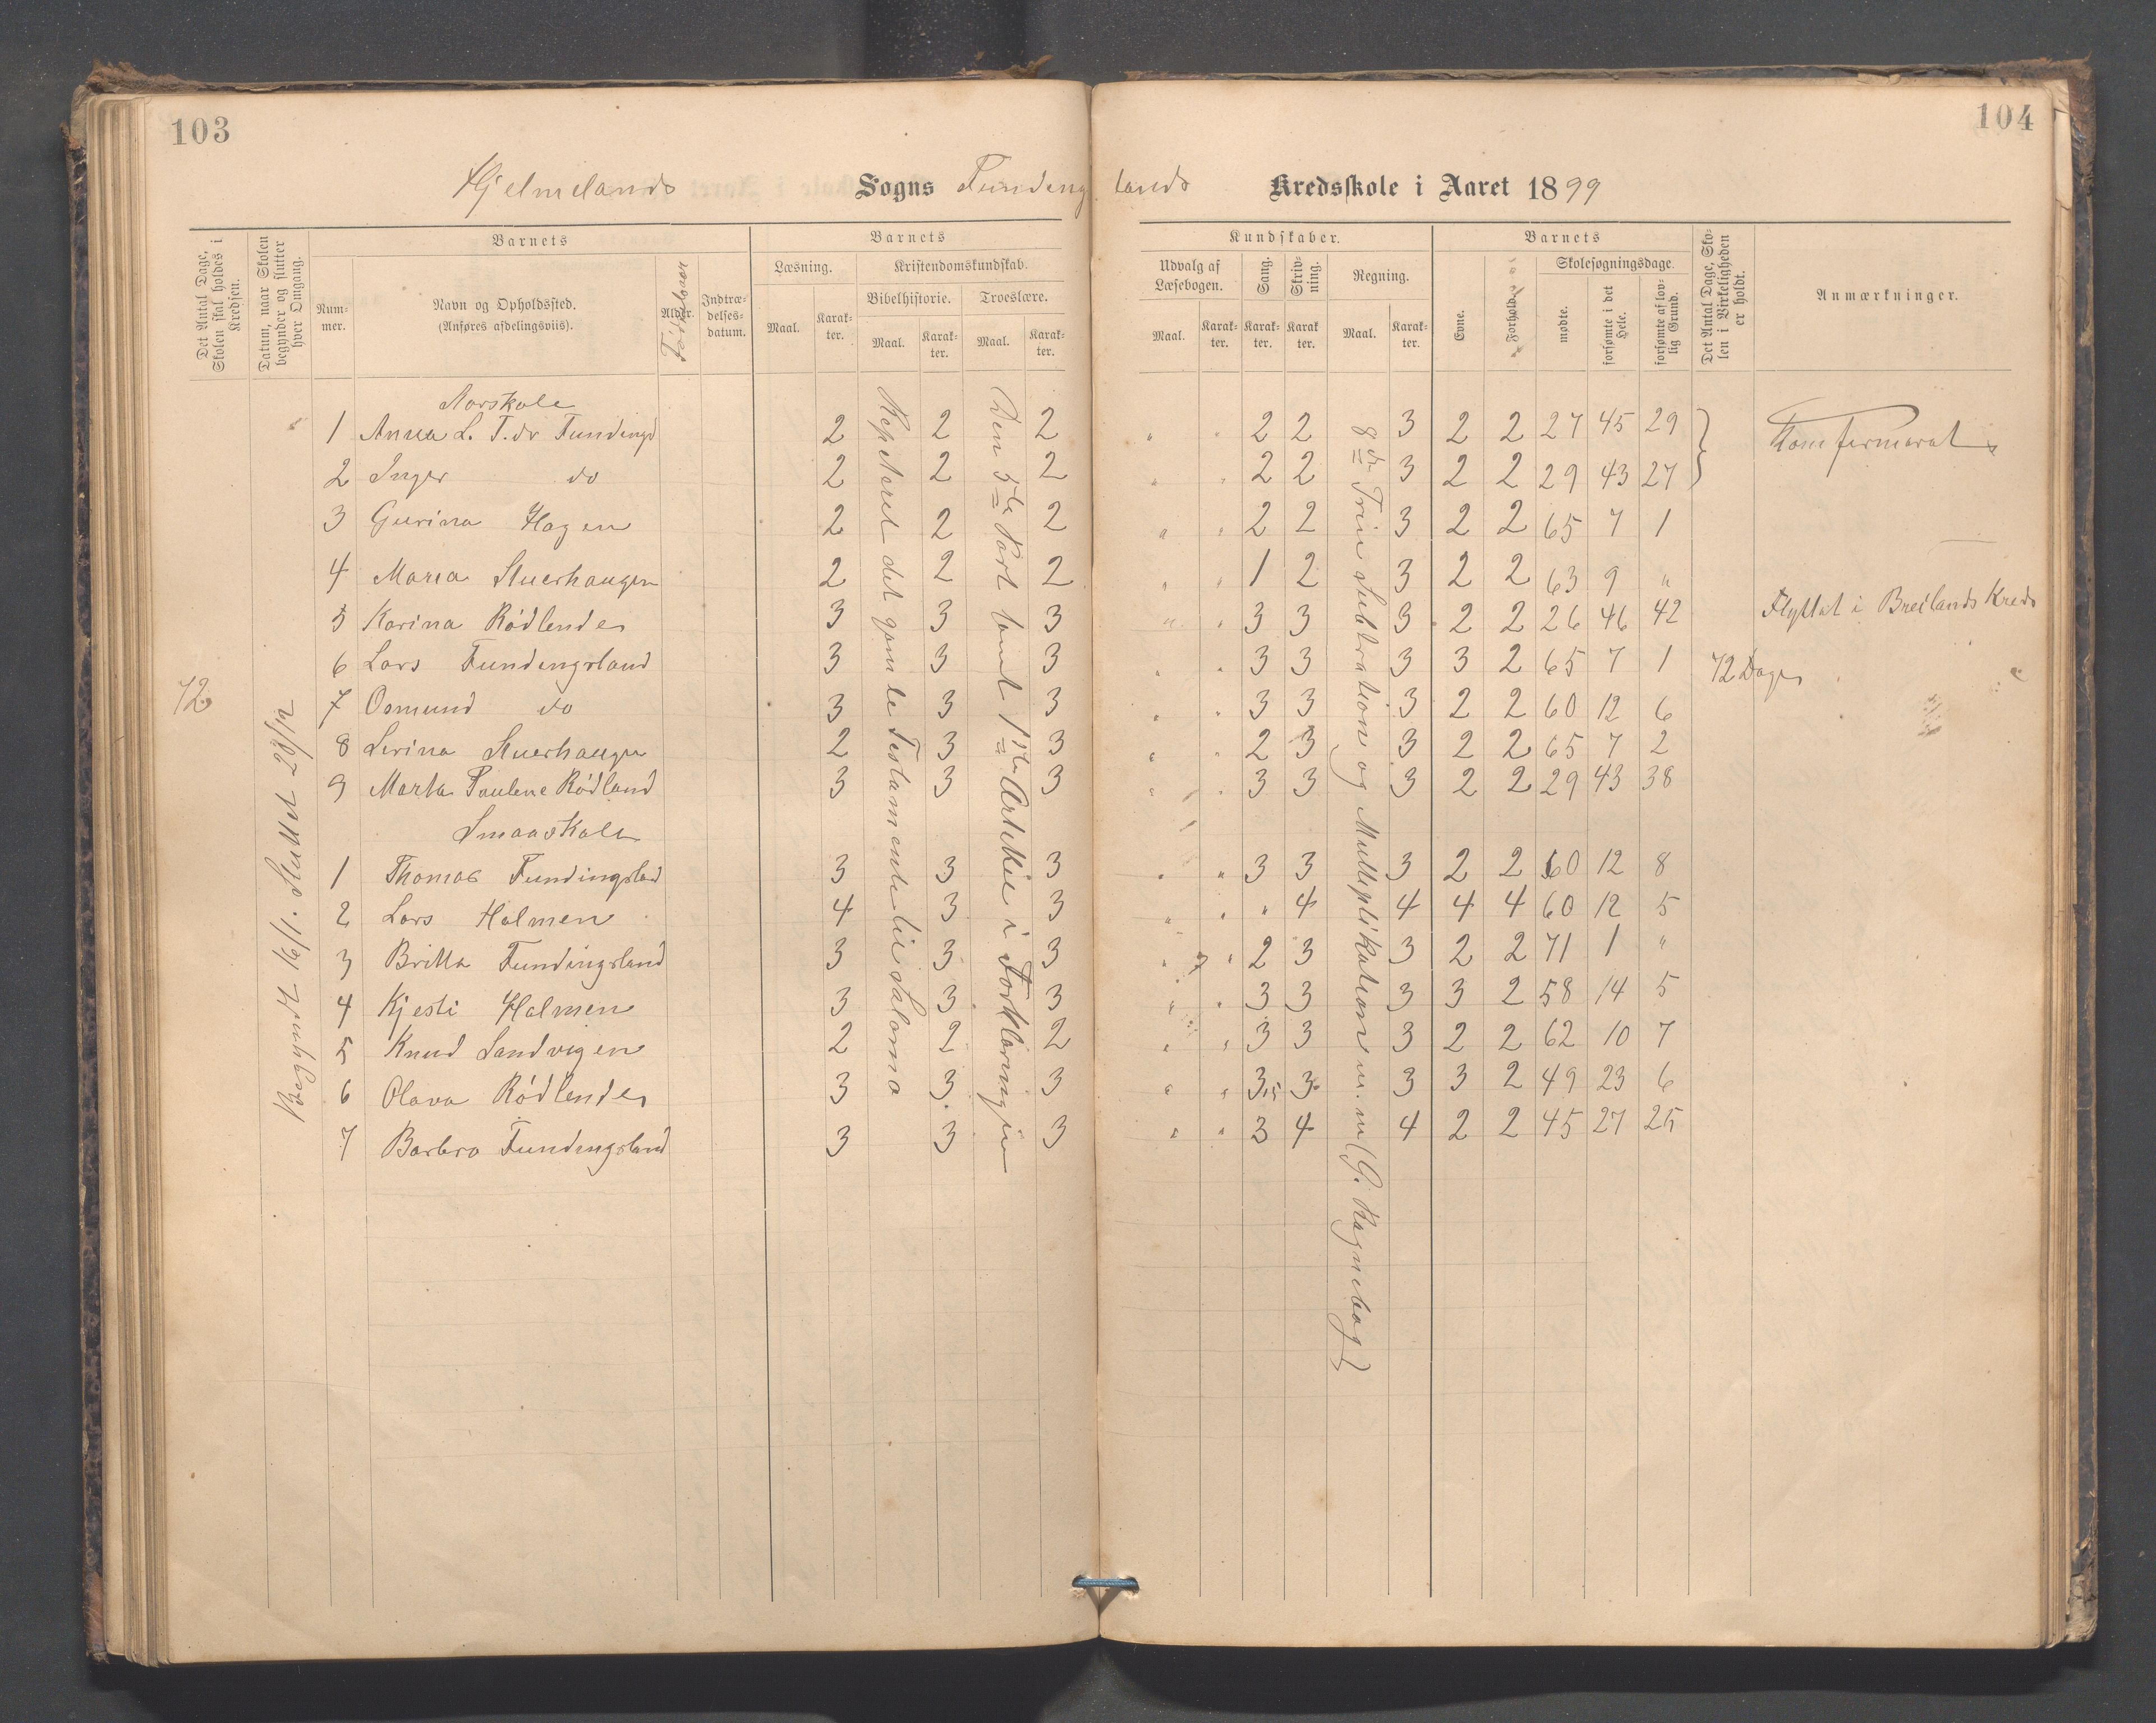 103
104
Hjelmelands Sogns Fundings lands Kredsskole i Aaret 1899
Det Antal Dage, Skolen skal holdes i Kredsen.
Datum, naar Skolen begynder og slutter hver Omgang.
Barnets
Num-mer.
Navn og Opholdssted.
(Anføres afdelingsviis).
Alder.
Fødselsaar
Indtræ-delses-datum.
Barnets
Læsning.
Kristendomskundskab.
Bibelhistorie.
Troeslære.
Maal. Karak-ter. Maal. Karak-ter. Maal. Karak-ter.
Kundskaber.
Udvalg af Læsebogen.
Sang.
Skriv-ning.
Regning.
Maal. Karak-ter. Karak-ter. Karak ter. Maal. Karak-ter.
Barnets
Evne.
Forhold.
Skolesøgningsdage.
mødte.
forsømte i det Hele.
forsømte af lov-lig Grund.
Det Antal Dage, Sko-len i Virkeligheden er holdt.
Anmærkninger.
72
Begyndt 16/1. Sluttet 28/12
Repeteret det gamle Testamente til Salomo
Den 5te Part samt 1ste Artikkel i Forklaringen
8de Trin Subtration og Multiplikation m.m (G. Regnebog)
Storskole
1 Anna L. T. dr Fundingsl 2 2 2 " " 2 2 3 2 2 27 45 29 } Komfermeret
2 Inger do 2 2 2 " " 2 2 3 2 2 29 43 27
3 Gurina Hagen 2 2 2 " " 2 2 3 2 2 65 7 1
4 Maria Stuerhaugen 2 2 2 " " 1 2 3 2 2 63 9 "
5 Karina Rødlende 3 3 3 " 3 3 3 2 2 26 46 42 Flyttet i Breilands Kreds
6 Lars Fundingsland 3 3 3 " " 3 3 3 3 2 65 7 1 72 Dage
7 Osmund do 3 3 3 " " 3 3 3 2 2 60 12 6
8 Serina Stuerhaugen 2 3 3 " " 2 3 3 2 2 65 7 2
9 Marta Paulene Rødland 3 3 3 " " 3 3 3 2 2 29 43 38
Smaaskole
1 Thomas Fundingsland 3 3 3 " " 3 3 3 2 2 60 12 8
2 Lars Holmen 4 3 3 " " " 4 4 4 4 60 12 5
3 Britta Fundingsland 3 3 3 " " 2 3 3 2 2 71 1 "
4 Kjesti Holmen 3 3 3 " " 3 3 3 3 2 58 14 5
5 Knud Sandvigen 2 2 2 " " 3 3 3 2 2 62 10 7
6 Olava Rødlende 3 3 3 " " 3,5 3 3 3 2 49 23 6
7 Barbro Fundingsland 3 3 3 " " 3 4 4 2 2 45 27 25